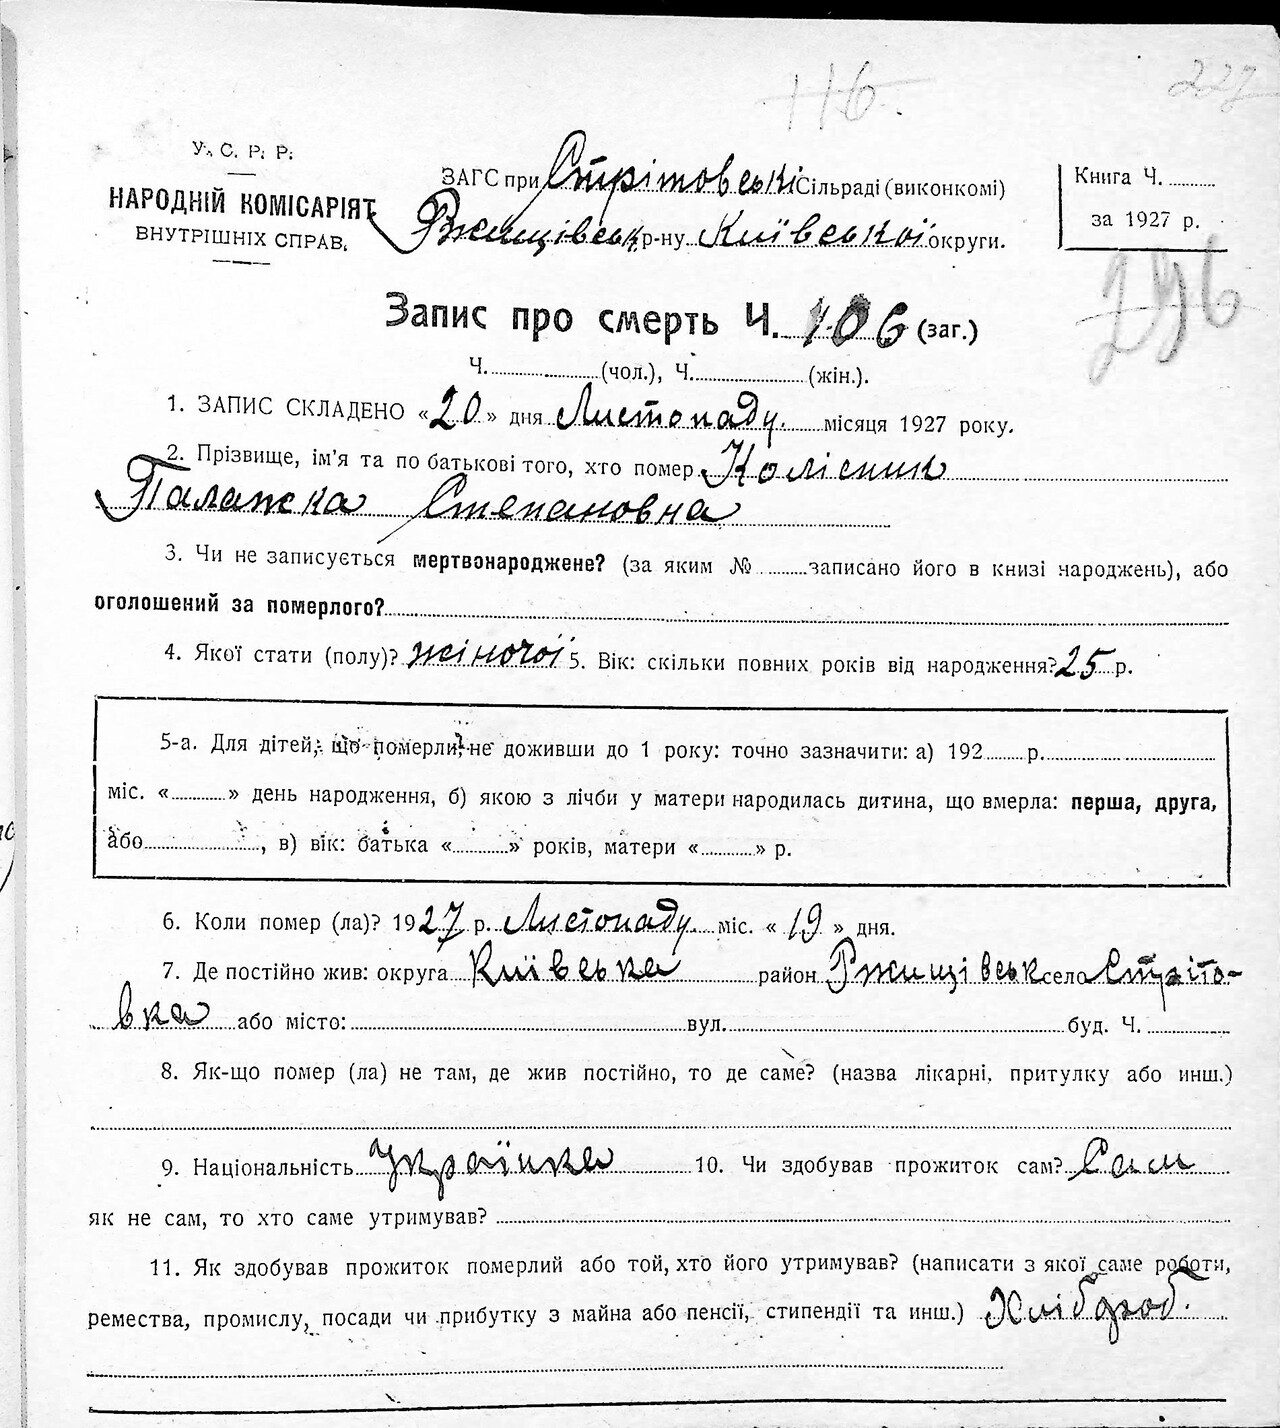 116.
227
У. С. Р. Р.
НАРОДНІЙ КОМІСАРІЯТ
ВНУТРІШНІХ СПРАВ.
ЗАГС при Стрітовські Сільраді (виконкомі)
Ржищівськ р-ну Київської округи.
Книга Ч.
за 1927 р.
246
Запис про смерть Ч. 106 (заг.)
Ч. (чол.), Ч. (жін.).
1. ЗАПИС СКЛАДЕНО «20» дня Листопаду місяця 1927 року.
2. Прізвище, ім'я та по батькові того, хто помер Колісник
Палажка Степановна
3. Чи не записується мертвонароджене? (за яким № записано його в книзі народжень), або
оголошений за померлого?
4. Якої стати (полу)? жіночої 5. Вік: скільки повних років від народження? 25 р.
5-а. Для дітей, що померли, не доживши до 1 року: точно зазначити: а) 192 р.
міс. « » день народження, б) якою з лічби у матери народилась дитина, що вмерла: перша, друга,
або , в) вік: батька « » років, матери « » р.
6. Коли помер (ла)? 1927 р. Листопаду міс. «19» дня.
7. Де постійно жив: округа Київська район Ржищівськ село Стріто-
вка або місто: вул. буд. Ч.
8. Як-що помер (ла) не там, де жив постійно, то де саме? (назва лікарні, притулку або инш.)
9. Національність Українка 10. Чи здобував прожиток сам? Сам
як не сам, то хто саме утримував?
11. Як здобував прожиток померлий або той, хто його утримував? (написати з якої саме роботи,
ремества, промислу, посади чи прибутку з майна або пенсії, стипендії та инш.) Хлібороб.